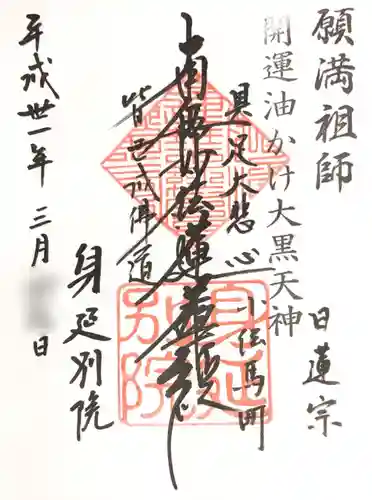 願満祖師
日蓮宗
開運油かけ大黒天神
小伝馬町
具足大悲心
南無妙法蓮華経
皆已成佛道
身延別院
平成卅一年三月
日
身延別院